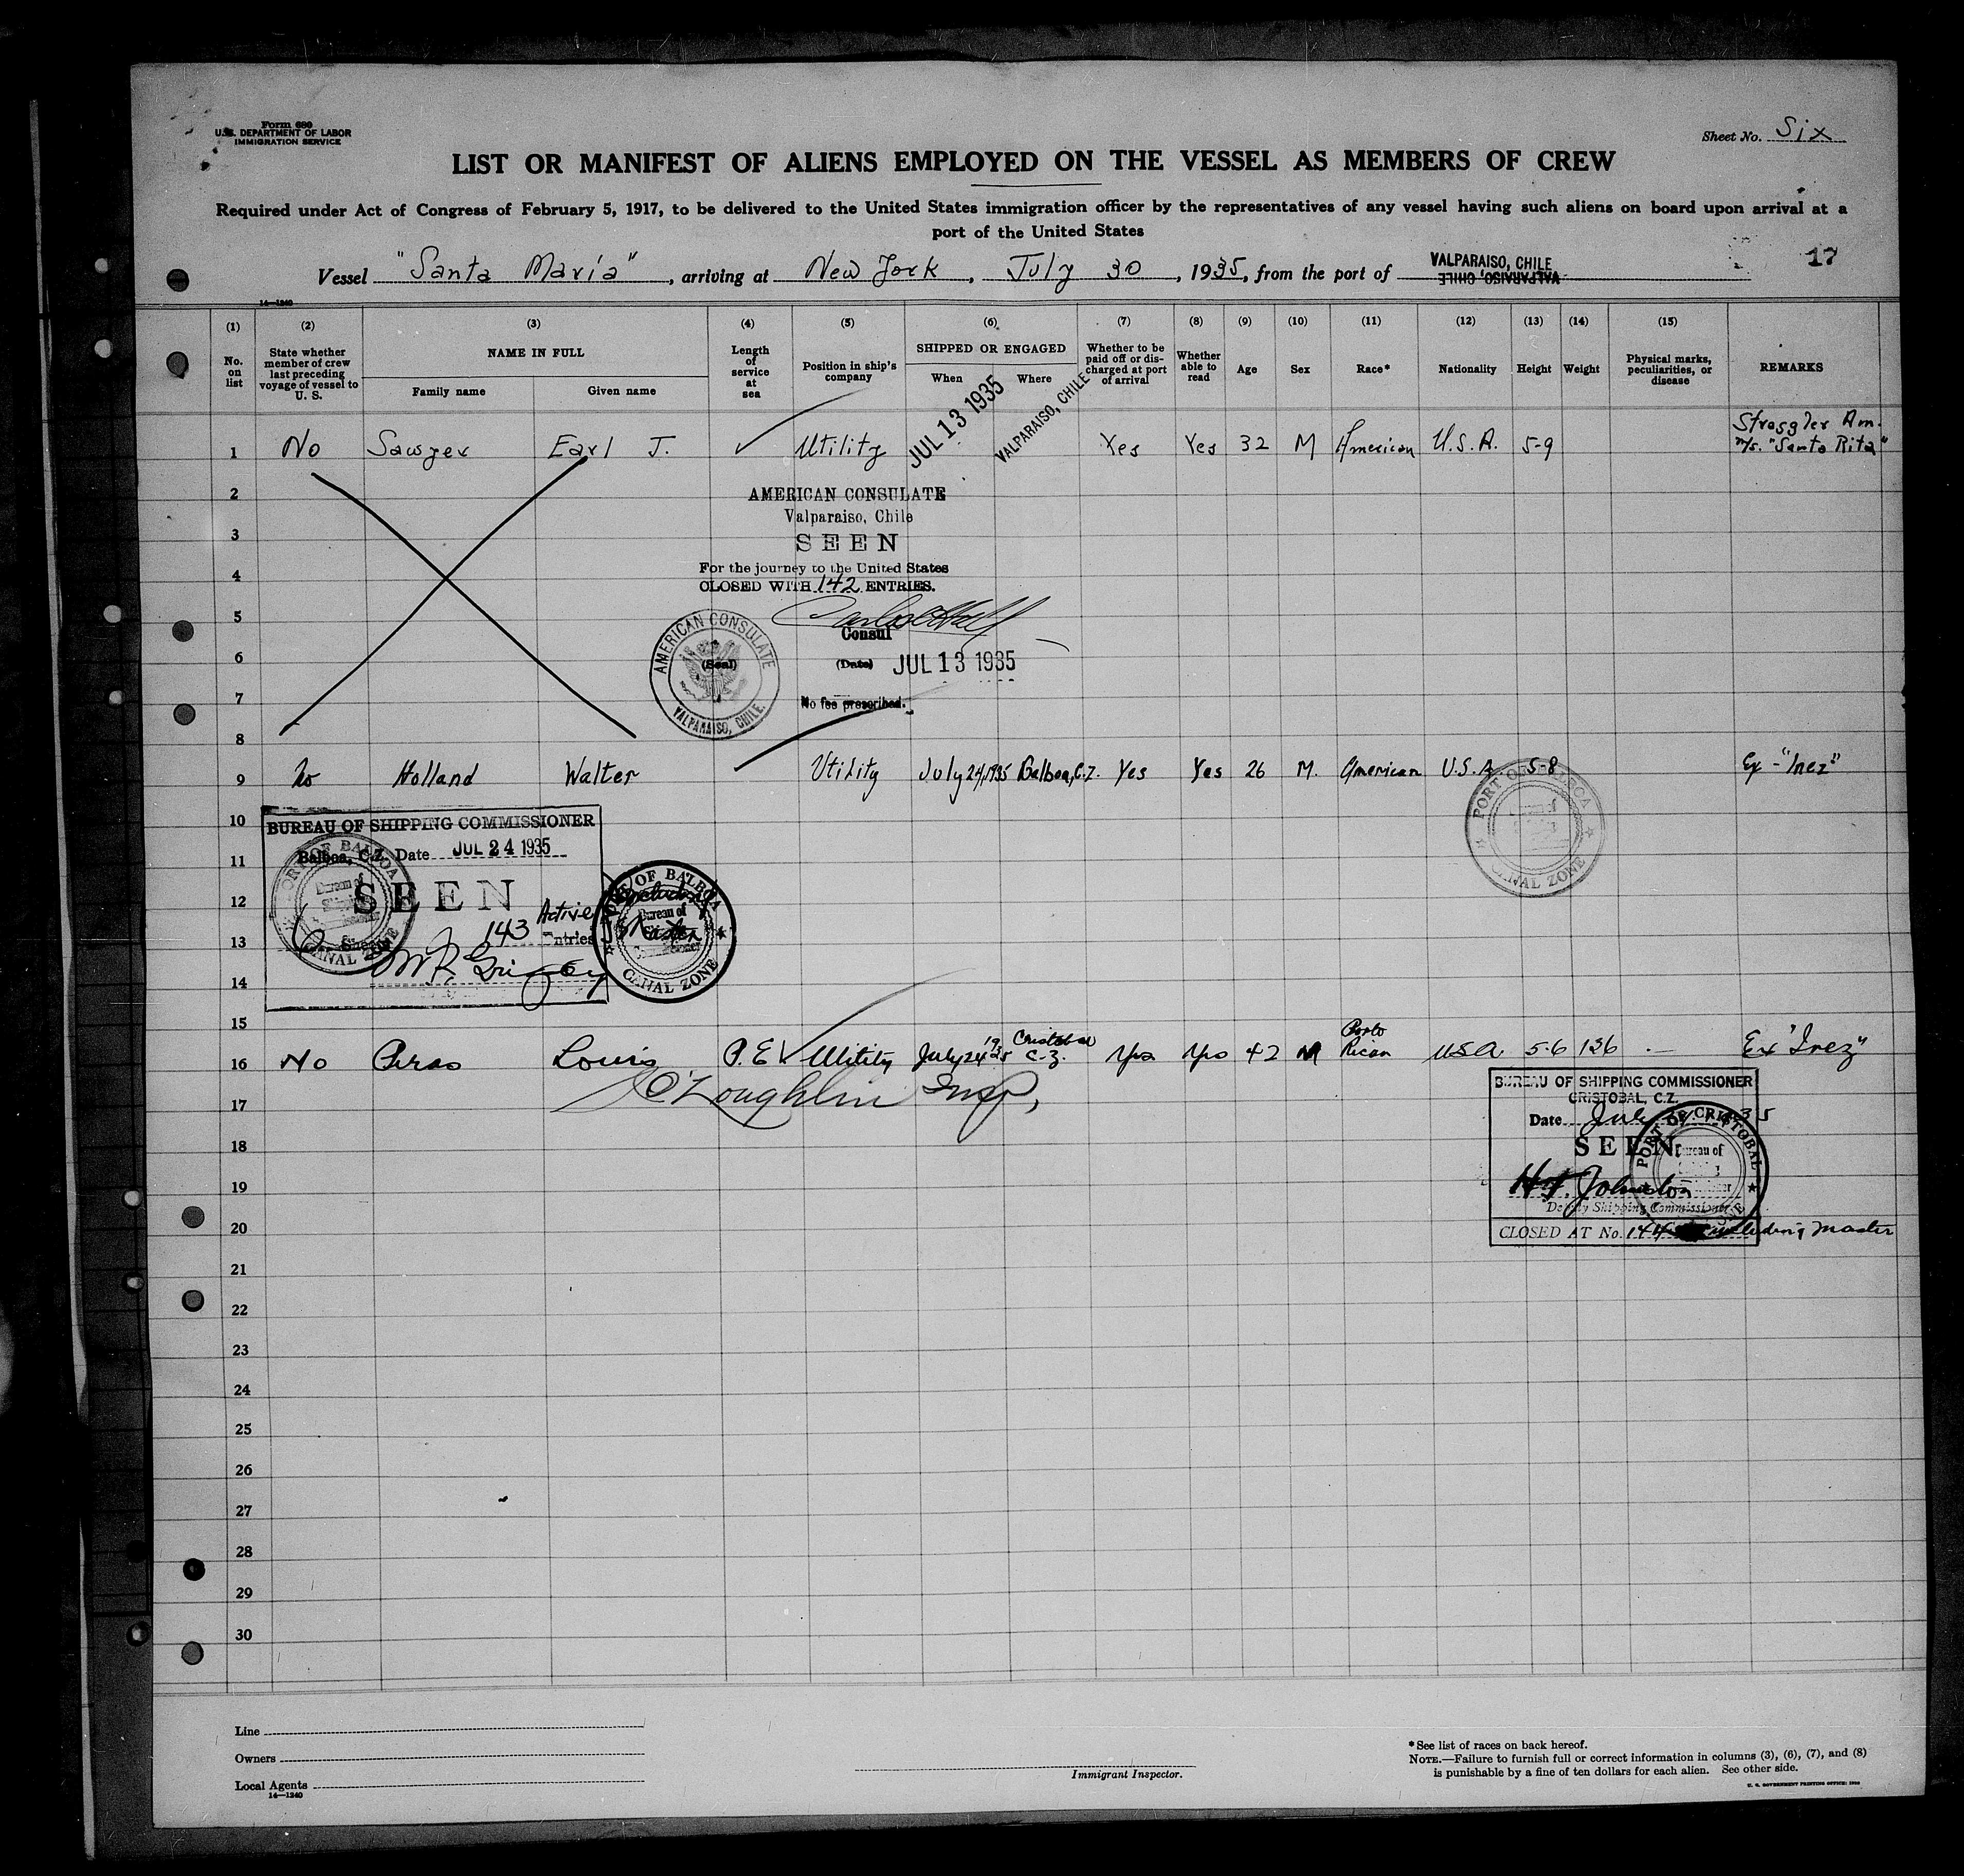 Form 680
U.S. DEPARTMENT OF LABOR
IMMIGRATION SERVICE
Sheet No. Six
LIST OR MANIFEST OF ALIENS EMPLOYED ON THE VESSEL AS MEMBERS OF CREW
Required under Act of Congress of February 5, 1917, to be delivered to the United States immigration officer by the representatives of any vessel having such aliens on board upon arrival at a
port of the United States
Vessel "Santa Maria", arriving at New York, July 30, 1935, from the port of VALPARAISO, CHILE
VALPARAISO, CHILE
17
14—1240
(1) (2) (3) (4) (5) (6) (7) (8) (9) (10) (11) (12) (13) (14) (15)
No. on list
State whether member of crew last preceding voyage of vessel to U. S.
NAME IN FULL
Family name Given name
Length of service at sea
Position in ship's company
SHIPPED OR ENGAGED
When Where
Whether to be paid off or discharged at port of arrival
Whether able to read
Age
Sex
Race*
Nationality
Height
Weight
Physical marks, peculiarities, or disease
REMARKS
1 No Sawyer Earl J. Utility JUL 13 1935 VALPARAISO, CHILE Yes Yes 32 M American U.S.A. 5-9 Straggler Am. m/s. "Santa Rita"
2
AMERICAN CONSULATE
Valparaiso, Chile
3
SEEN
4
For the journey to the United States
CLOSED WITH 142 ENTRIES.
5
Consul
6
(Date) JUL 13 1935
AMERICAN CONSULATE
(Seal)
VALPARAISO, CHILE.
7
No fee prescribed.
8
9 No Holland Walter Utility July 24, 1935 Balboa, C.Z. Yes Yes 26 M. American U.S.A. 5-8 Ex - "Inez"
PORT OF BALBOA
CANAL ZONE
10
BUREAU OF SHIPPING COMMISSIONER
11
Balboa, C.Z. Date JUL 24 1935
12
SEEN
13
143 Active Entries
PORT OF BALBOA
Bureau of
CANAL ZONE
Including Master
PORT OF BALBOA
Bureau of
Commissioner
CANAL ZONE
14
15
16 No Louis P.E. Utility July 24 1935 Cristobal C.Z. Yes Yes 42 M Porto Rican USA 5-6 136 — Ex "Inez"
O'Loughlin Insp,
17
BUREAU OF SHIPPING COMMISSIONER
CRISTOBAL, C.Z.
Date July 1935
18
SEEN
PORT OF CRISTOBAL
Bureau of
19
H.F. Johnston
Deputy Shipping Commissioner
20
CLOSED AT No. 144 including Master
21
22
23
24
25
26
27
28
29
30
Line
Owners
Local Agents
14—1240
Immigrant Inspector.
*See list of races on back hereof.
NOTE.—Failure to furnish full or correct information in columns (3), (6), (7), and (8)
is punishable by a fine of ten dollars for each alien. See other side.
U. S. GOVERNMENT PRINTING OFFICE: 1930